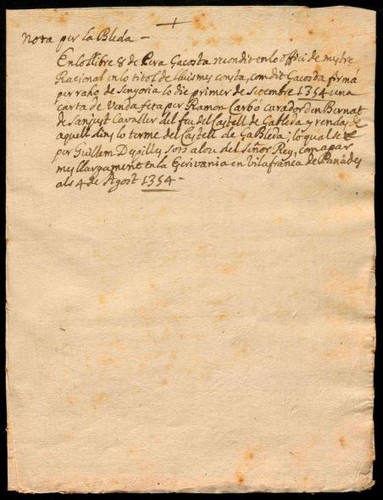 +
Nota per la Bleda -
En lo llibre 8 de Pera Gacosta recondit en lo offici de mestre
Racional en lo titol de lluismes consta, com dit Gacosta firma
per rahó de senyoria lo die primer de Setembre 1354 una
carta de Venda feta per Ramon Carbó curador den Bernat
de Sanjust Cavaller del feu del Castell de Gableda y rendas de
aquell dins lo terme del Castell de Gableda; lo qual te
per Guillem Despilles sots alou del Señor Rey, com apar
mes llargament en la Escrivania en Vilafranca de Panades
als 4 de Agost 1354 -